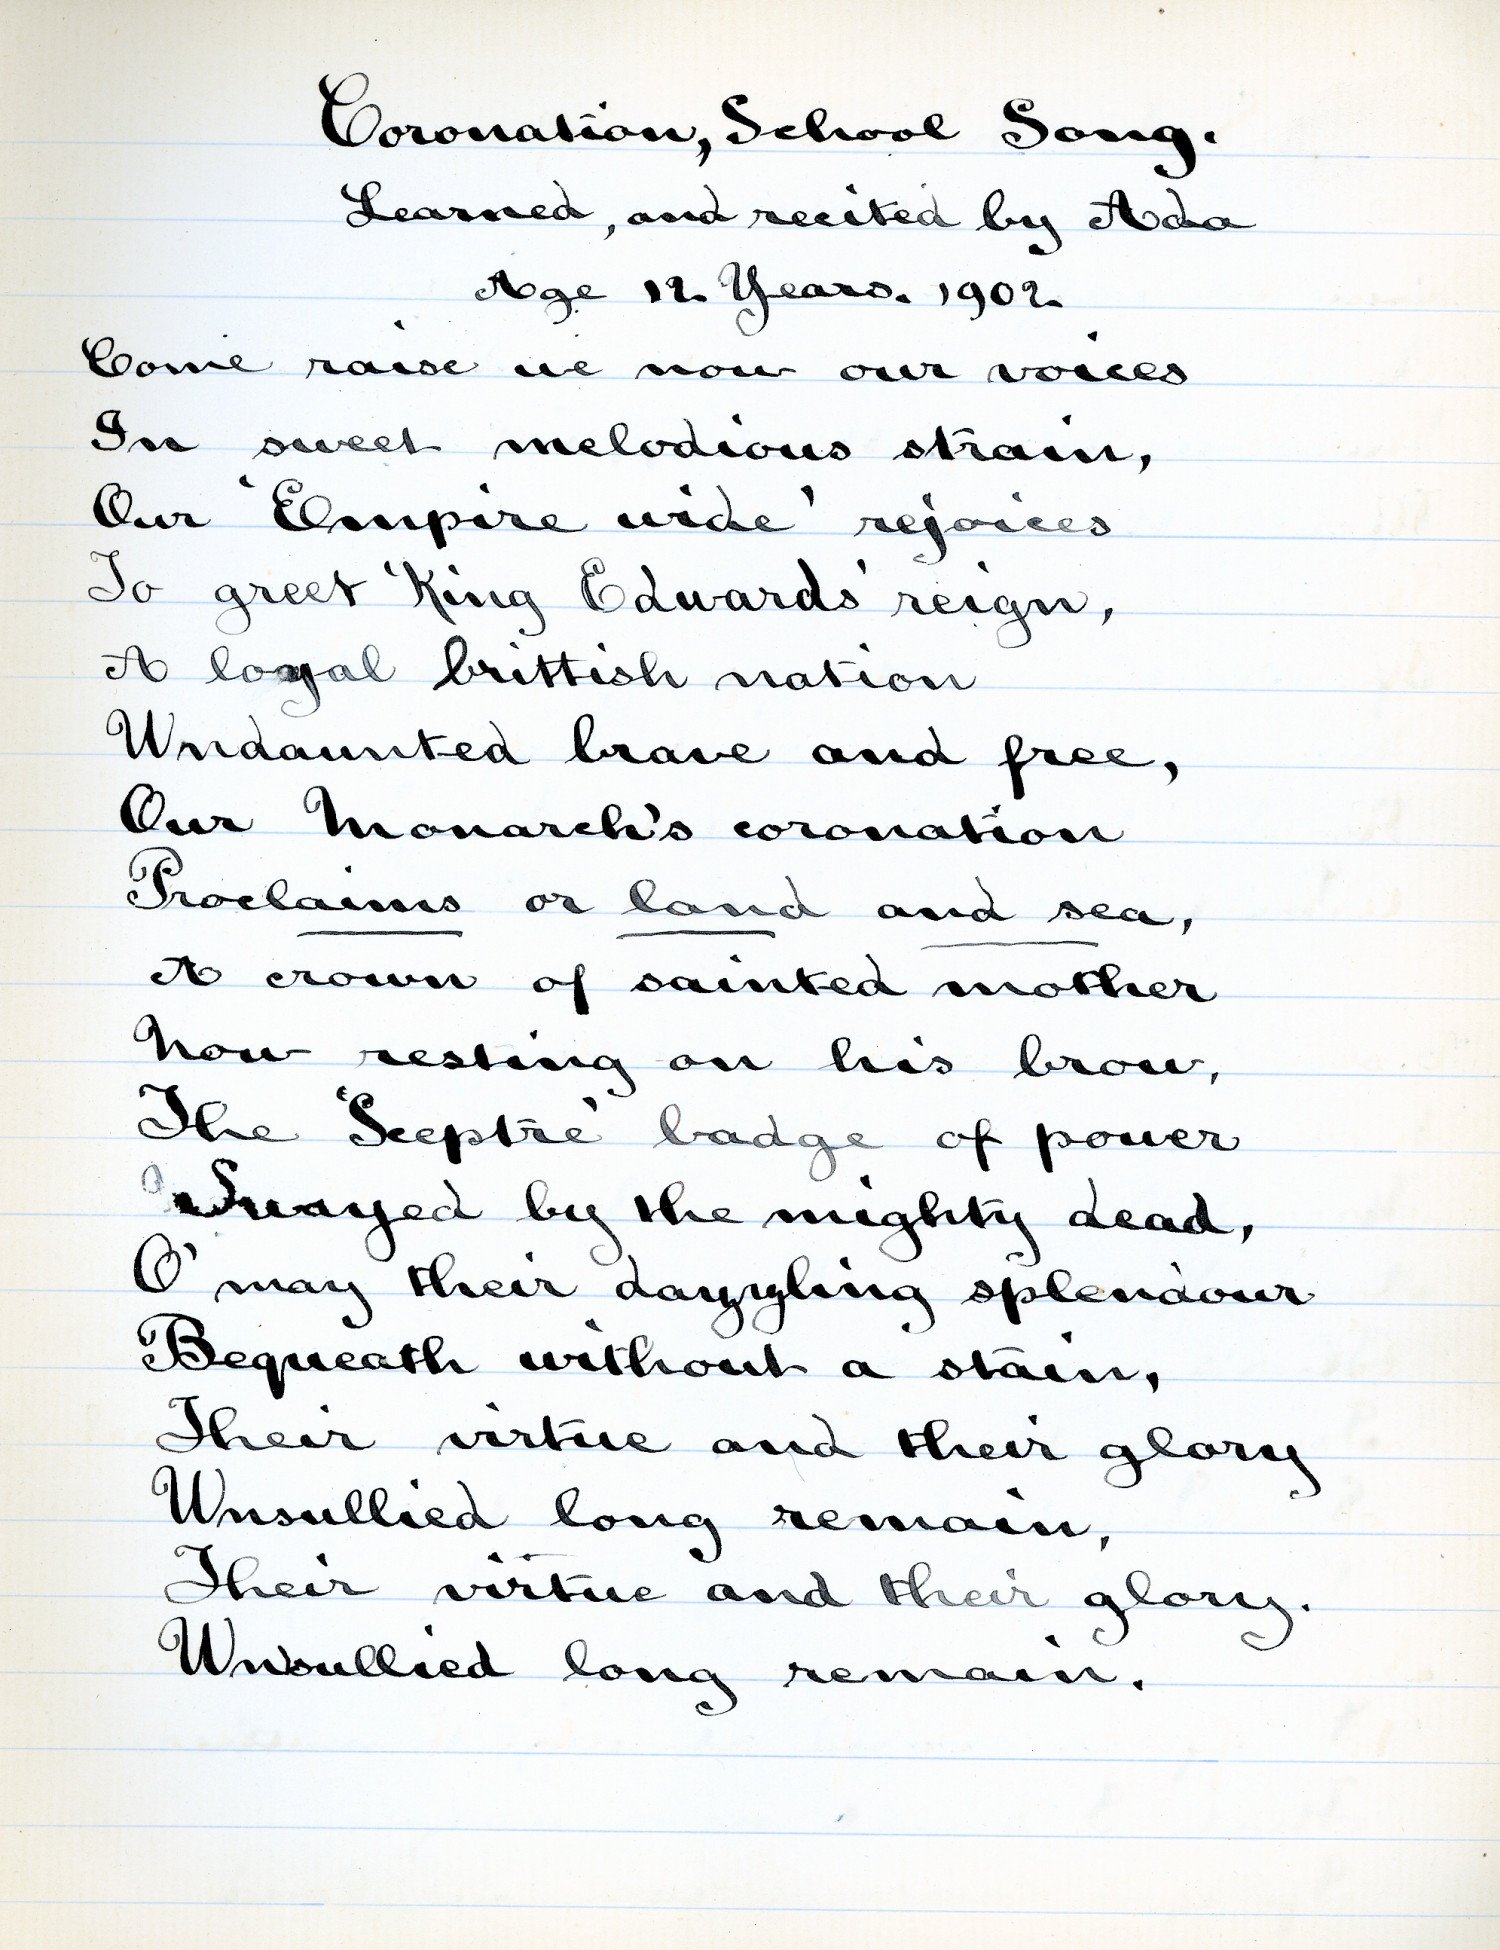 Coronation, School Song.
Learned, and recited by Ada
Age 12 Years. 1902
Come raise we now our voices
In sweet melodious strain,
Our 'Empire wide' rejoices
To greet 'King Edwards' reign,
A loyal brittish nation
Undaunted brave and free,
Our Monarch's coronation
Proclaims or land and sea,
A crown of sainted mother
Now resting on his brow,
The 'Sceptre' badge of power
Swayed by the mighty dead,
O' may their dazzling splendour
Bequeath without a stain,
Their virtue and their glory
Unsullied long remain,
Their virtue and their glory.
Unsullied long remain.